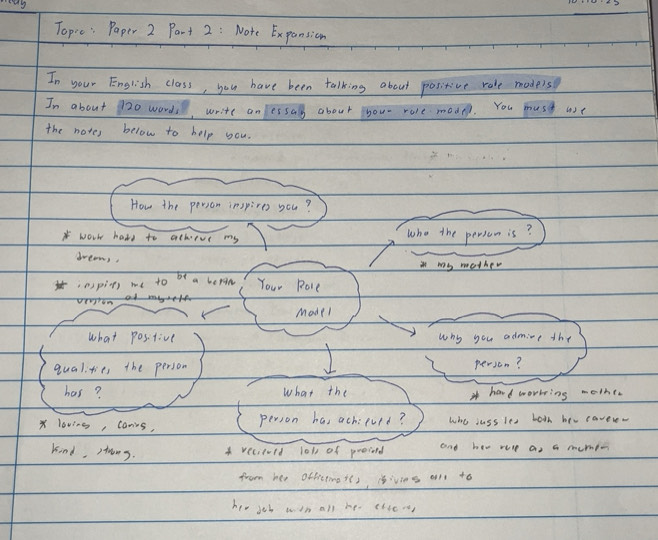 10.10.25
Topic: Paper 2 Part 2: Note Expansion
In your English class, you have been talking about positive role models
In about 120 words, write an essay about your role model. You must use
the notes below to help you.
How the person inspires you?
* work hard to achieve my
dreams.
* inspires me to be a better
version of myself.
Who the person is?
* my mother
Your Role
Model
What positive
qualities the person
has?
* loving, caring,
kind, strong.
Why you admire the
person?
* hard working mother
who juggles both her career
and her role as a mother
What the
person has achieved?
* recieved lots of
from her officemates, giving all to
her job with all her